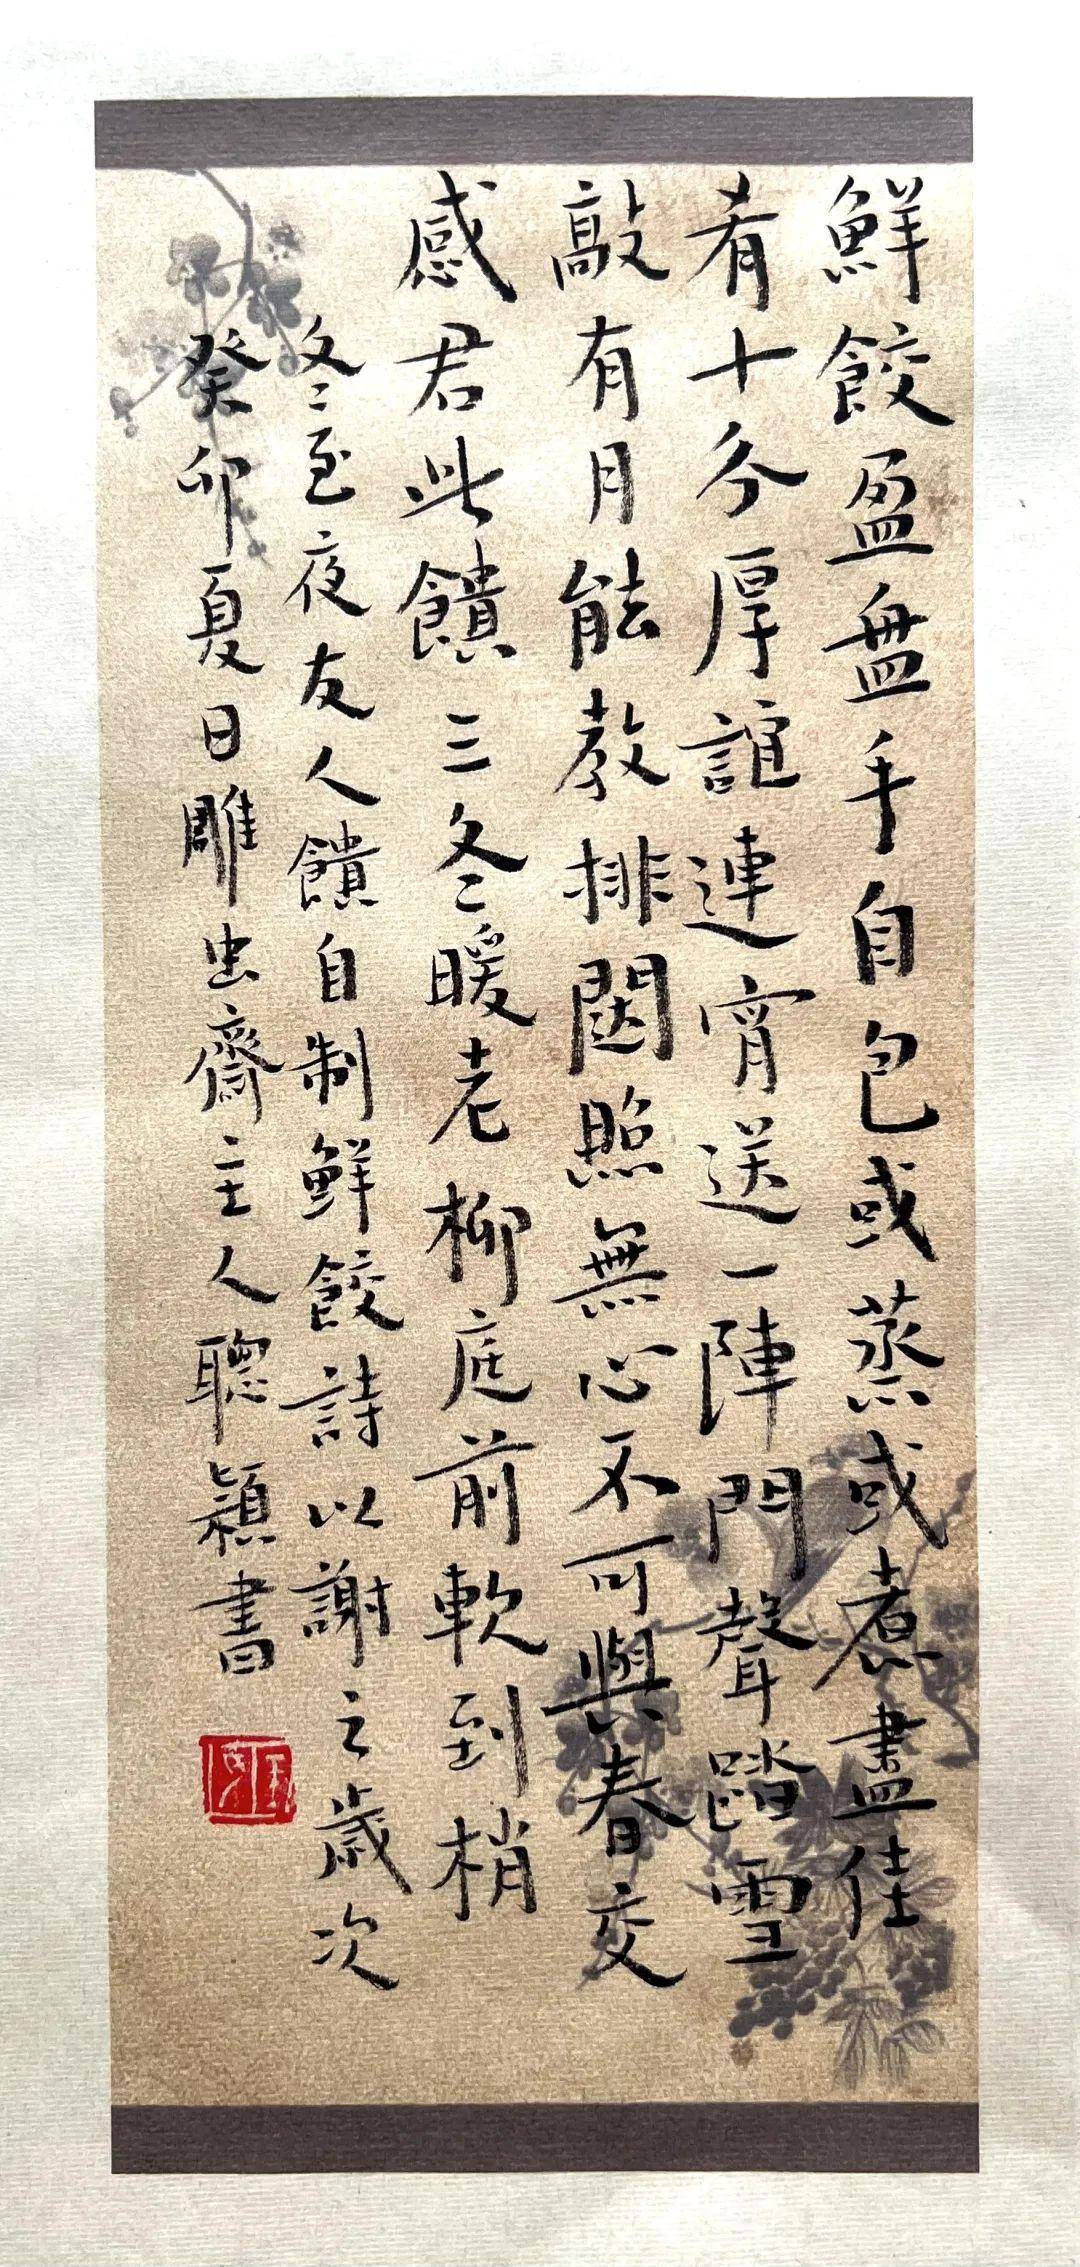 鮮餃盈盤手自包或蒸或煮盡佳
肴十分厚誼連宵送一陣門聲踏雪
敲有月能教排闥照無心不可與春交
感君此饋三冬暖老柳庭前軟到梢
冬至夜友人饋自制鮮餃詩以謝之歲次
癸卯夏日雕虫齋主人聰穎書